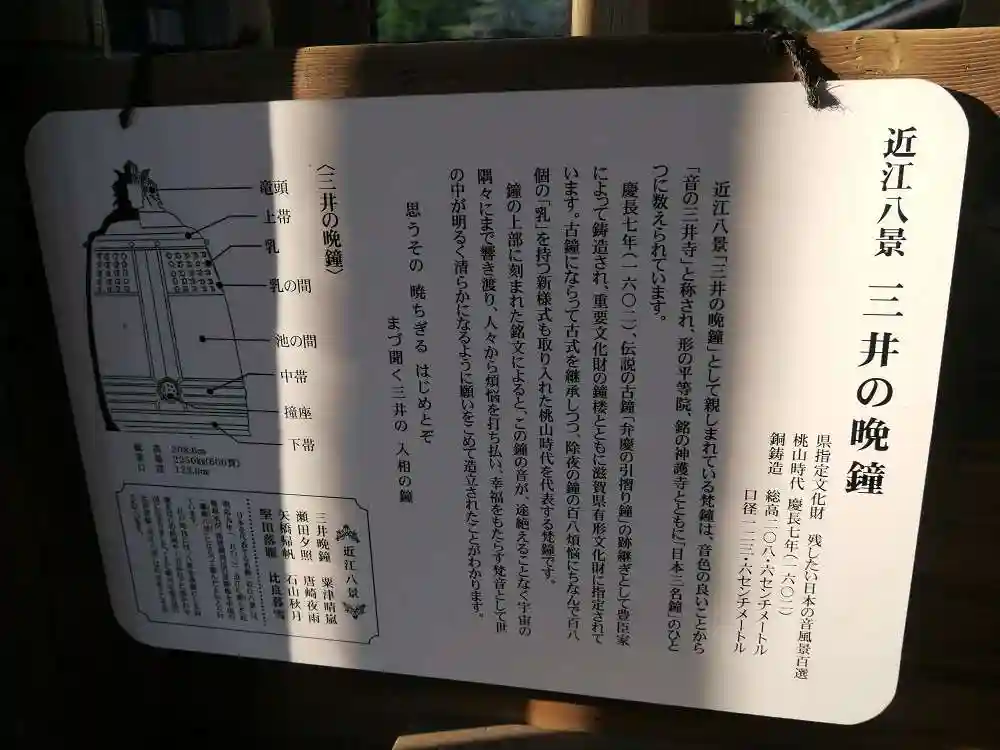 近江八景 三井の晩鐘
県指定文化財 残したい日本の音風景百選
桃山時代 慶長七年(一六〇二)
銅鋳造 総高二〇八・六センチメートル
口径一二三・六センチメートル
近江八景「三井の晩鐘」として親しまれている梵鐘は、音色の良いことから
「音の三井寺」と称され、形の平等院、銘の神護寺とともに「日本三名鐘」のひと
つに数えられています。
慶長七年(一六〇二)、伝説の古鐘「弁慶の引摺り鐘」の跡継ぎとして豊臣家
によって鋳造され、重要文化財の鐘楼とともに滋賀県有形文化財に指定されて
います。古鐘にならって古式を継承しつつ、除夜の鐘の百八煩悩にちなんで百八
個の「乳」を持つ新様式も取り入れた桃山時代を代表する梵鐘です。
鐘の上部に刻まれた銘文によると、この鐘の音が、途絶えることなく宇宙の
隅々にまで響き渡り、人々から煩悩を打ち払い、幸福をもたらす梵音として世
の中が明るく清らかになるように願いをこめて造立されたことがわかります。
思うその 暁ちぎる はじめとぞ
まづ聞く三井の 入相の鐘
〈三井の晩鐘〉
竜頭
上帯
乳
乳の間
池の間
中帯
撞座
下帯
総高 208.6cm
重量 2250kg(600貫)
口径 123.6cm
近江八景
三井晩鐘 粟津晴嵐
瀬田夕照 唐崎夜雨
矢橋帰帆 石山秋月
堅田落雁 比良暮雪